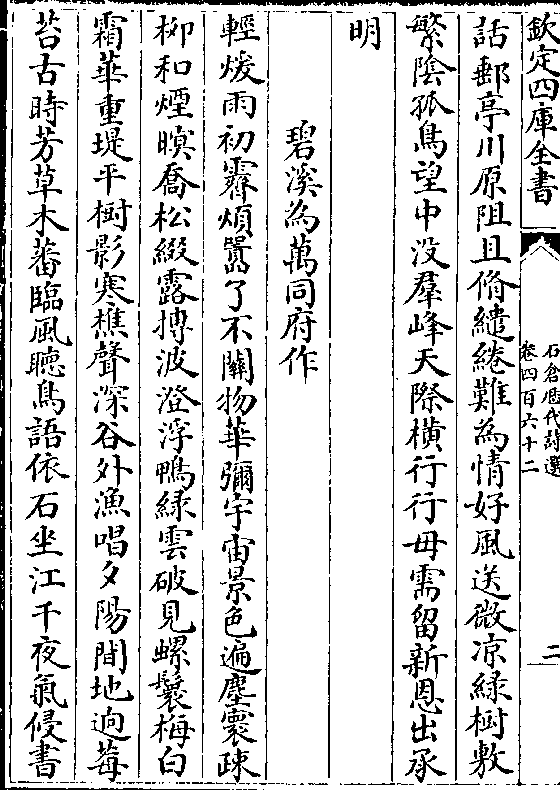 欽定四庫全書
石倉歷代詩選
卷四百六十二
二
話郵亭川原阻且脩繾綣難為情好風送微凉綠樹敷
繁陰孤鳥望中没羣峰天際橫行行毋需留新恩出承
明
碧溪為萬同府作
輕煖雨初霽煩囂了不關物華彌宇宙景色遍塵寰疎
柳和煙暝喬松綴露摶波澄浮鴨緑雲破見螺鬟梅白
霜華重堤平樹影寒樵聲深谷外漁唱夕陽間地逈莓
苔古時芳草木蕃臨風聽鳥語依石坐江干夜氣侵書